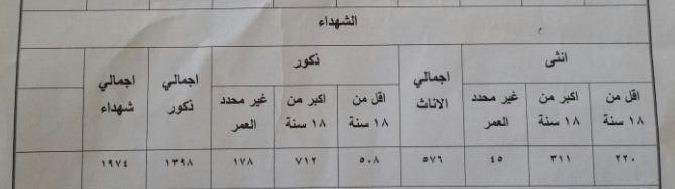 الشهداء
انثى ذكور
اقل من ١٨ سنة اكبر من ١٨ سنة غير محدد العمر اجمالي الاناث اقل من ١٨ سنة اكبر من ١٨ سنة غير محدد العمر اجمالي ذكور اجمالي شهداء
٢٢٠ ٣١١ ٤٥ ٥٧٦ ٥٠٨ ٧١٢ ١٧٨ ١٣٩٨ ١٩٧٤